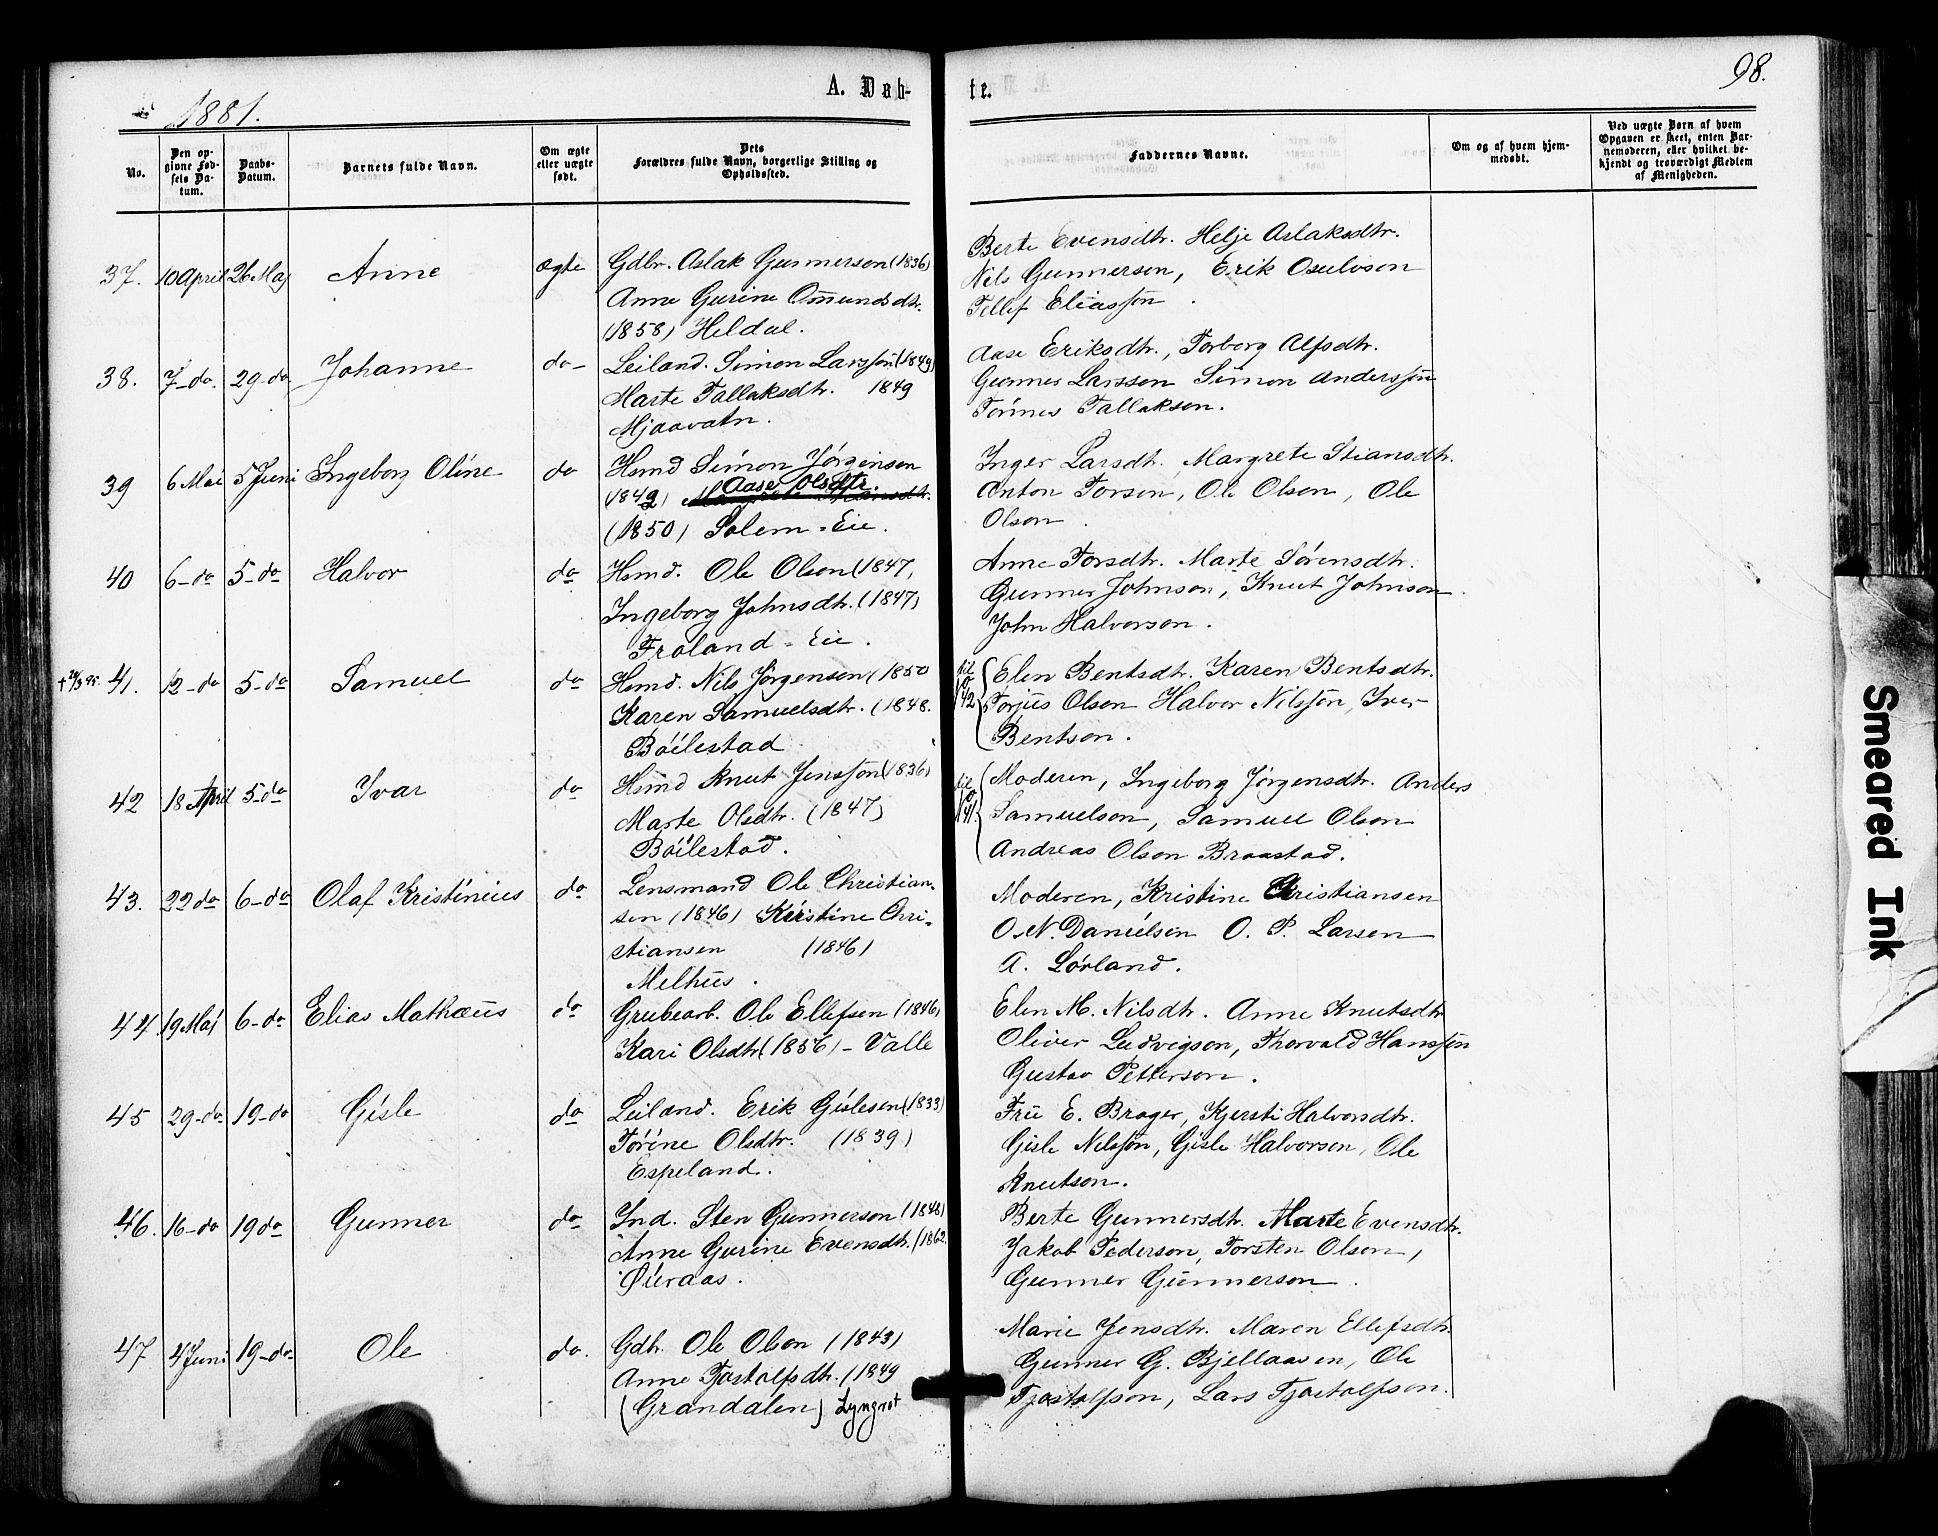 98.
A. Døb-
te.
1881.
No.
Den op-
givne Fød-
sels Da-
tum.
Daabs-
Datum.
Barnets fulde Navn.
Om ægte
eller uægte
født.
Dets
Forældres fulde Navn, borgerlige Stilling og
Opholdssted.
Faddernes Navne.
Om og af hvem hjem-
medøbt.
Ved uægte Børn af hvem
Opgaven er skeet, enten Bar-
nemoderen, eller hvilket be-
kjendt og troværdigt Medlem
af Menigheden.
37. 10 April 26 Maj Anne ægte Gdbr. Aslak Gunnerson (1836)
Anne Gurine Omundsdtr.
(1858) Heldal.
Berte Evensdtr. Helje Aslaksdtr.
Nils Gunnerson, Erik Osulvson
Tellef Eliassön.
38. 7-do. 29-do. Johanne do- Leiland. Simon Larssön (1849)
Marte Tallaksdtr. 1849
Mjaavatn.
Aase Eriksdtr., Torborg Alfsdtr.
Gunner Larsson Simon Anderssön
Tönnes Tallakson.
39 6 Mai 5 Juni Ingeborg Oline do Hsmd Simon Jörgenson
(1842) Aase Olsdtr.
(1850) Solem-Eie.
Inger Larsdtr. Margrete Stiansdtr.
Anton Torson, Ole Olson, Ole
Olson.
40 6-do 5-do Halvor do Hsmd. Ole Olson (1847,
Ingeborg Johnsdtr. (1847)
Froland-Eie.
Anne Torsdtr. Marte Sörensdtr.
Gunner Johnson, Knut Johnson.
John Halvorson.
41. 12-do 5-do Samuel do Hsmd. Nils Jörgenson (1850
Karen Samuelsdtr. (1848.
Böilestad
til No 42 Elen Bentsdtr. Karen Bentsdtr.
Torjus Olson Halvor Nilssön, Iver
Bentson.
42 18 April 5-do Ivar do Hsmd Knut Jenssön (1836)
Marte Olsdtr. (1847)
Böilestad.
til No 41. Moderen, Ingeborg Jörgensdtr. Anders
Samuelson, Samuel Olson
Andreas Olson Braastad.
43. 22 do 6-do Olaf Kristinius do Lensmand Ole Christian-
sen (1846) Kirstine Chri-
stiansen (1846)
Melhus.
Moderen, Kristine Christiansen
O.N. Danielsen O. P. Larsen
A. Lörland.
44. 19 Maj 6-do Elias Mathæus do Grubearb. Ole Ellefsen (1846)
Kari Olsdtr (1856) - Valle
Elen M. Nilsdtr. Anne Knutsdtr
Oliver Ludvigson, Thorvald Hanssön
Gustav Petterson.
45 29-do. 19-do Gisle do Leiland. Erik Gislesen (1833)
Törine Olsdtr. (1839)
Espeland.
Fru E. Brager, Kjersti Halvorsdtr.
Gisle Nilssön, Gisle Halvorsen, Ole
Knutson.
46. 16-do 19 do Gunner do Ind. Sten Gunnerson (1848)
Anne Gurine Evensdtr. (1862.
Berte Gunnersdtr. Marte Evensdtr.
Jakob Pederson, Torsten Olson,
Gunner Gunnerson.
47 4 Juni 19-do Ole do. Gdb. Ole Olson (1843)
Anne Tjostolfsdtr. (1849
(Grandalen) Lyngrot
Marie Jensdtr. Maren Ellefsdtr.
Gunner G. Bjellaasen, Ole
Tjostolfson, Lars Tjostolfson.
Smeared Ink